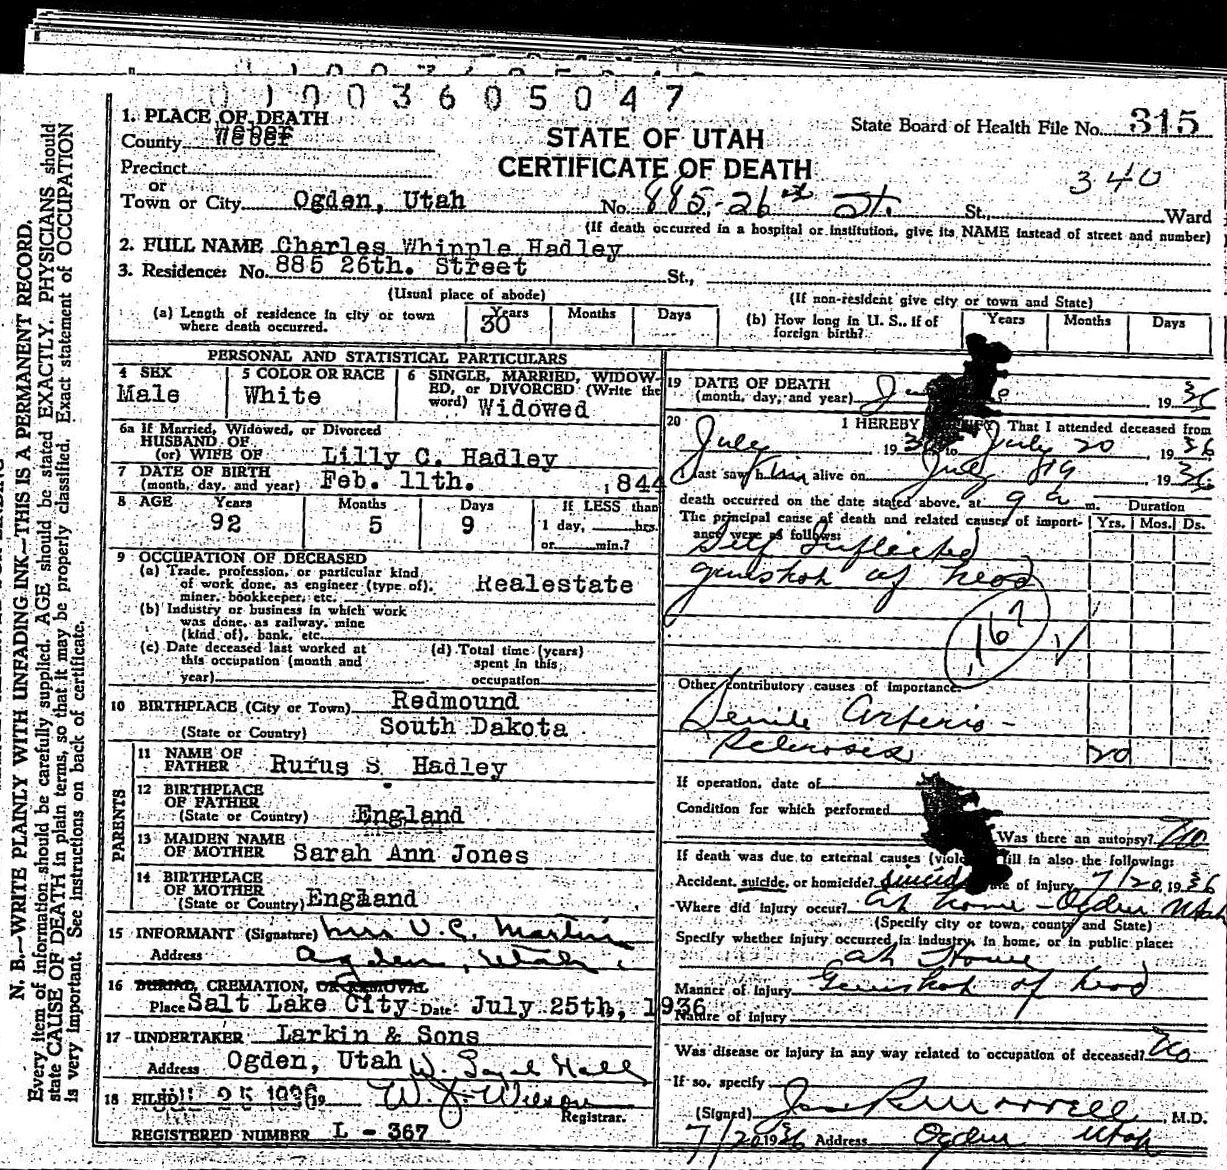 0 1 0 0 3 6 0 5 0 4 7
1. PLACE OF DEATH
County Weber
STATE OF UTAH
CERTIFICATE OF DEATH
State Board of Health File No. 315
340
Precinct
or
Town or City Ogden, Utah No. 885-26th St. St., Ward
(If death occurred in a hospital or institution, give its NAME instead of street and number)
2. FULL NAME Charles Whipple Hadley
3. Residence: No. 885 26th. Street St.,
(Usual place of abode) (If non-resident give city or town and State)
(a) Length of residence in city or town where death occurred. Years 30 Months Days
(b) How long in U. S., if of foreign birth? Years Months Days
PERSONAL AND STATISTICAL PARTICULARS
4 SEX Male
5 COLOR OR RACE White
6 SINGLE, MARRIED, WIDOWED, or DIVORCED (Write the word) Widowed
6a If Married, Widowed, or Divorced
HUSBAND OF
(or) WIFE OF Lilly C. Hadley
7 DATE OF BIRTH
(month, day, and year) Feb. 11th. 1844
8 AGE Years 92 Months 5 Days 9 If LESS than 1 day, hrs. or min.?
9 OCCUPATION OF DECEASED
(a) Trade, profession, or particular kind of work done, as engineer (type of), miner, bookkeeper, etc. Realestate
(b) Industry or business in which work was done, as railway, mine (kind of), bank, etc.
(c) Date deceased last worked at this occupation (month and year)
(d) Total time (years) spent in this occupation
10 BIRTHPLACE (City or Town) Redmound
(State or Country) South Dakota
PARENTS
11 NAME OF FATHER Rufus S Hadley
12 BIRTHPLACE OF FATHER
(State or Country) England
13 MAIDEN NAME OF MOTHER Sarah Ann Jones
14 BIRTHPLACE OF MOTHER
(State or Country) England
15 INFORMANT (Signature) Mrs V.C. Martin
Address Ogden, Utah.
16 BURIAL, CREMATION, OR REMOVAL
Place Salt Lake City Date July 25th, 1936
17 UNDERTAKER Larkin & Sons
Address Ogden, Utah
18 FILED JUL 25 1936 19 W. J. Wilson
Registrar.
REGISTERED NUMBER L - 367
19 DATE OF DEATH
(month, day, and year) 19 36
20 I HEREBY That I attended deceased from
July 19 36 to July 20 19 36
I last saw him alive on July 19 19 36
death occurred on the date stated above, at 9 a m.
Duration
The principal cause of death and related causes of importance were as follows: Yrs. Mos. Ds.
Self Inflicted
gunshot of head
167
Other contributory causes of importance:
Senile Arterio-
sclerosis 20
If operation, date of
Condition for which performed
Was there an autopsy? No
If death was due to external causes fill in also the following:
Accident, suicide, or homicide? Suicide of injury 7/20 19 36
Where did injury occur? At home - Ogden Utah
(Specify city or town, county and State)
Specify whether injury occurred in industry, in home, or in public place:
at Home
Manner of Injury Gunshot of head
Nature of injury
Was disease or injury in any way related to occupation of deceased? No
If so, specify
(Signed) Morrell, M.D.
7/20 1936 Address Ogden Utah
N. B.—WRITE PLAINLY WITH UNFADING INK—THIS IS A PERMANENT RECORD.
Every item of information should be carefully supplied. AGE should be stated EXACTLY. PHYSICIANS should
state CAUSE OF DEATH in plain terms, so that it may be properly classified. Exact statement of OCCUPATION
is very important. See instructions on back of certificate.